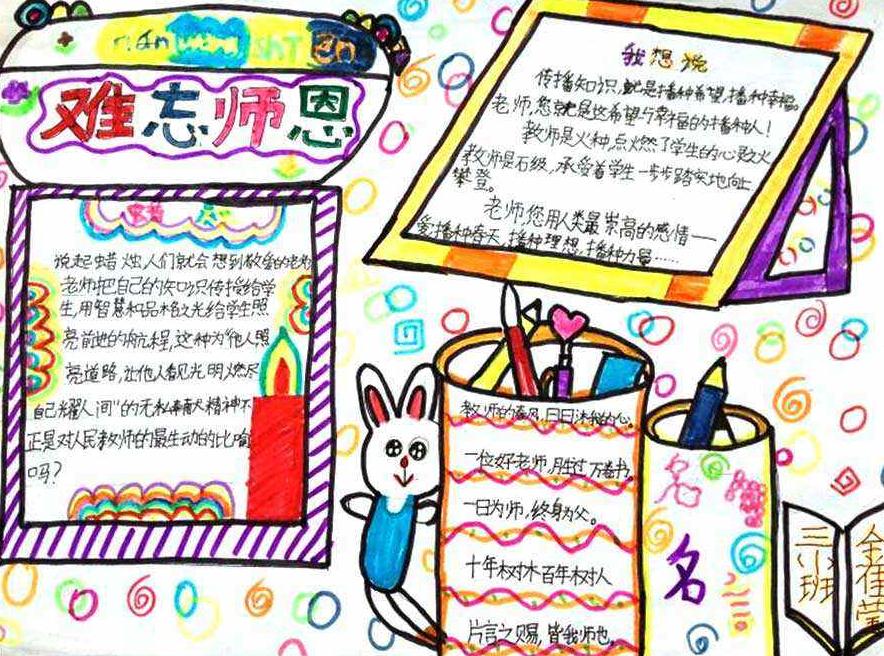 nan wang shi en
难忘师恩
我想说
传播知识,就是播种希望,播种幸福。
老师,您就是这希望与幸福的播种人!
教师是火种,点燃了学生的心灵之火
教师是石级,承受着学生一步步踏实地向上
攀登。
老师您用人类最崇高的感情——
爱播种春天,播种理想,播种力量……
说起蜡烛,人们就会想到敬爱的老师
老师把自己的知识传授给学
生,用智慧和品格之光给学生照
亮前进的航程,这种为"他人照
亮道路,让他人看见光明燃尽
自己耀人间"的无私奉献精神不
正是对人民教师的最生动的比喻
吗?
教师的春风,日日沐我的心。
一位好老师,胜过万卷书。
一日为师,终身为父。
十年树木百年树人
片言之赐,皆我师也。
名